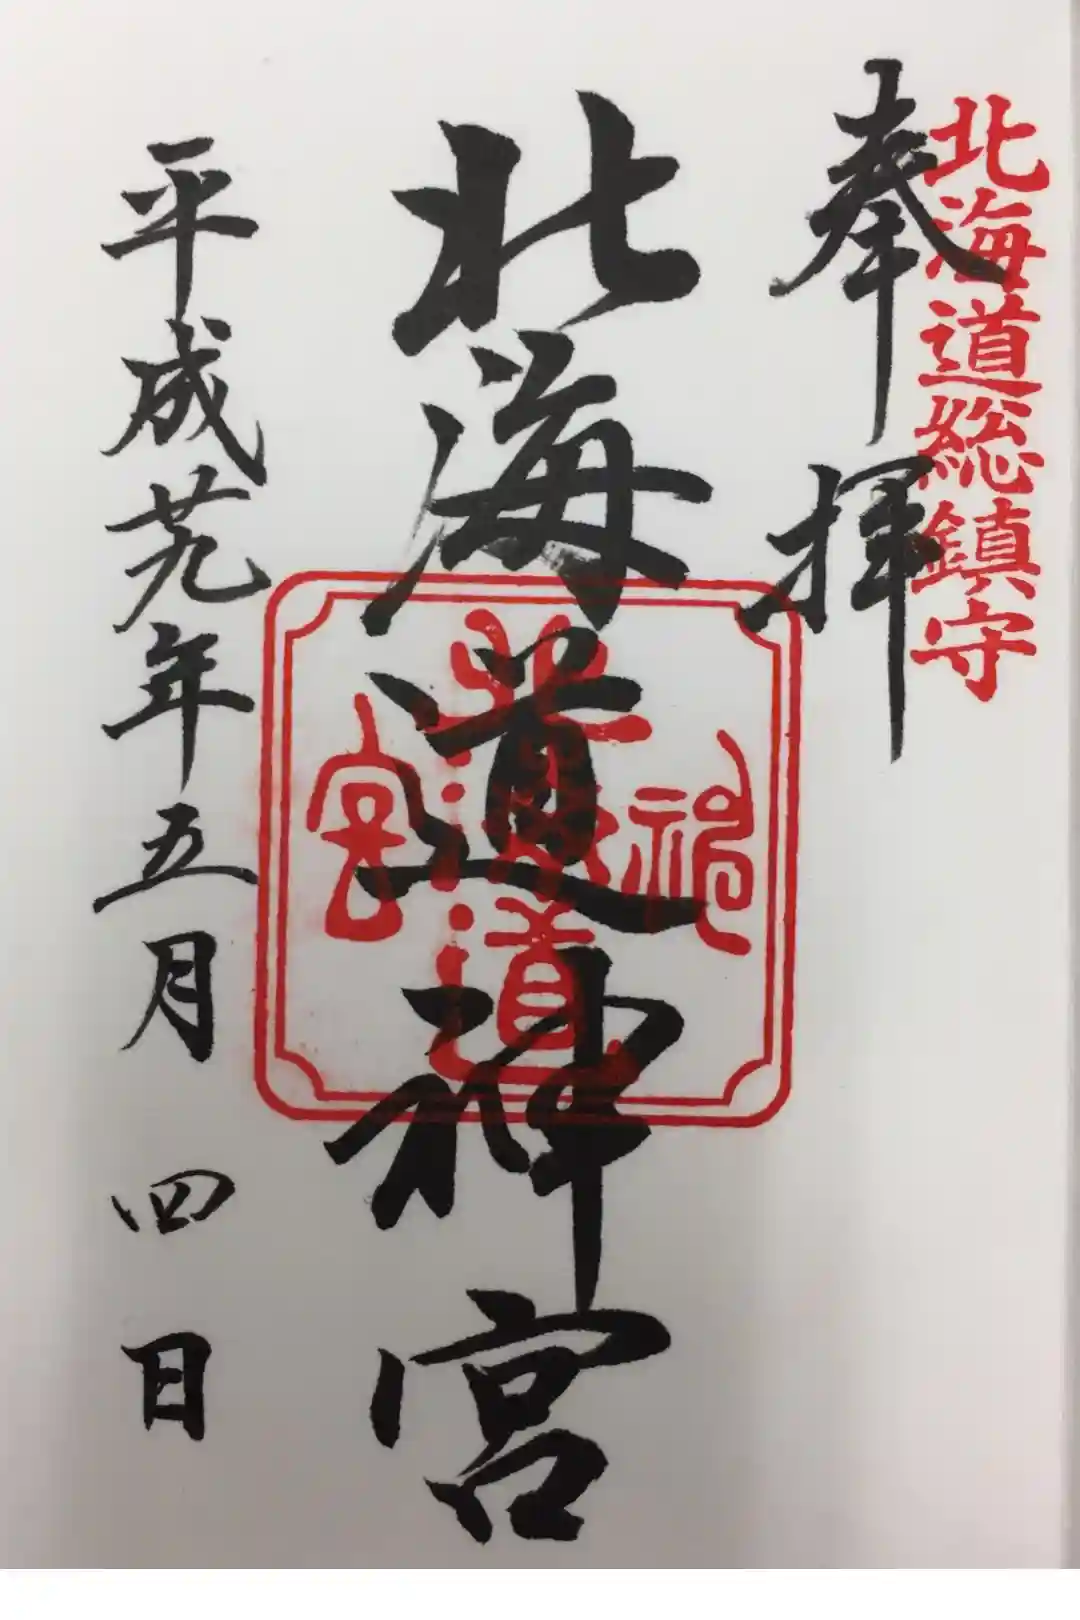 北海道総鎮守
奉拝
北海道神宮
北海道神宮
平成廿九年五月四日